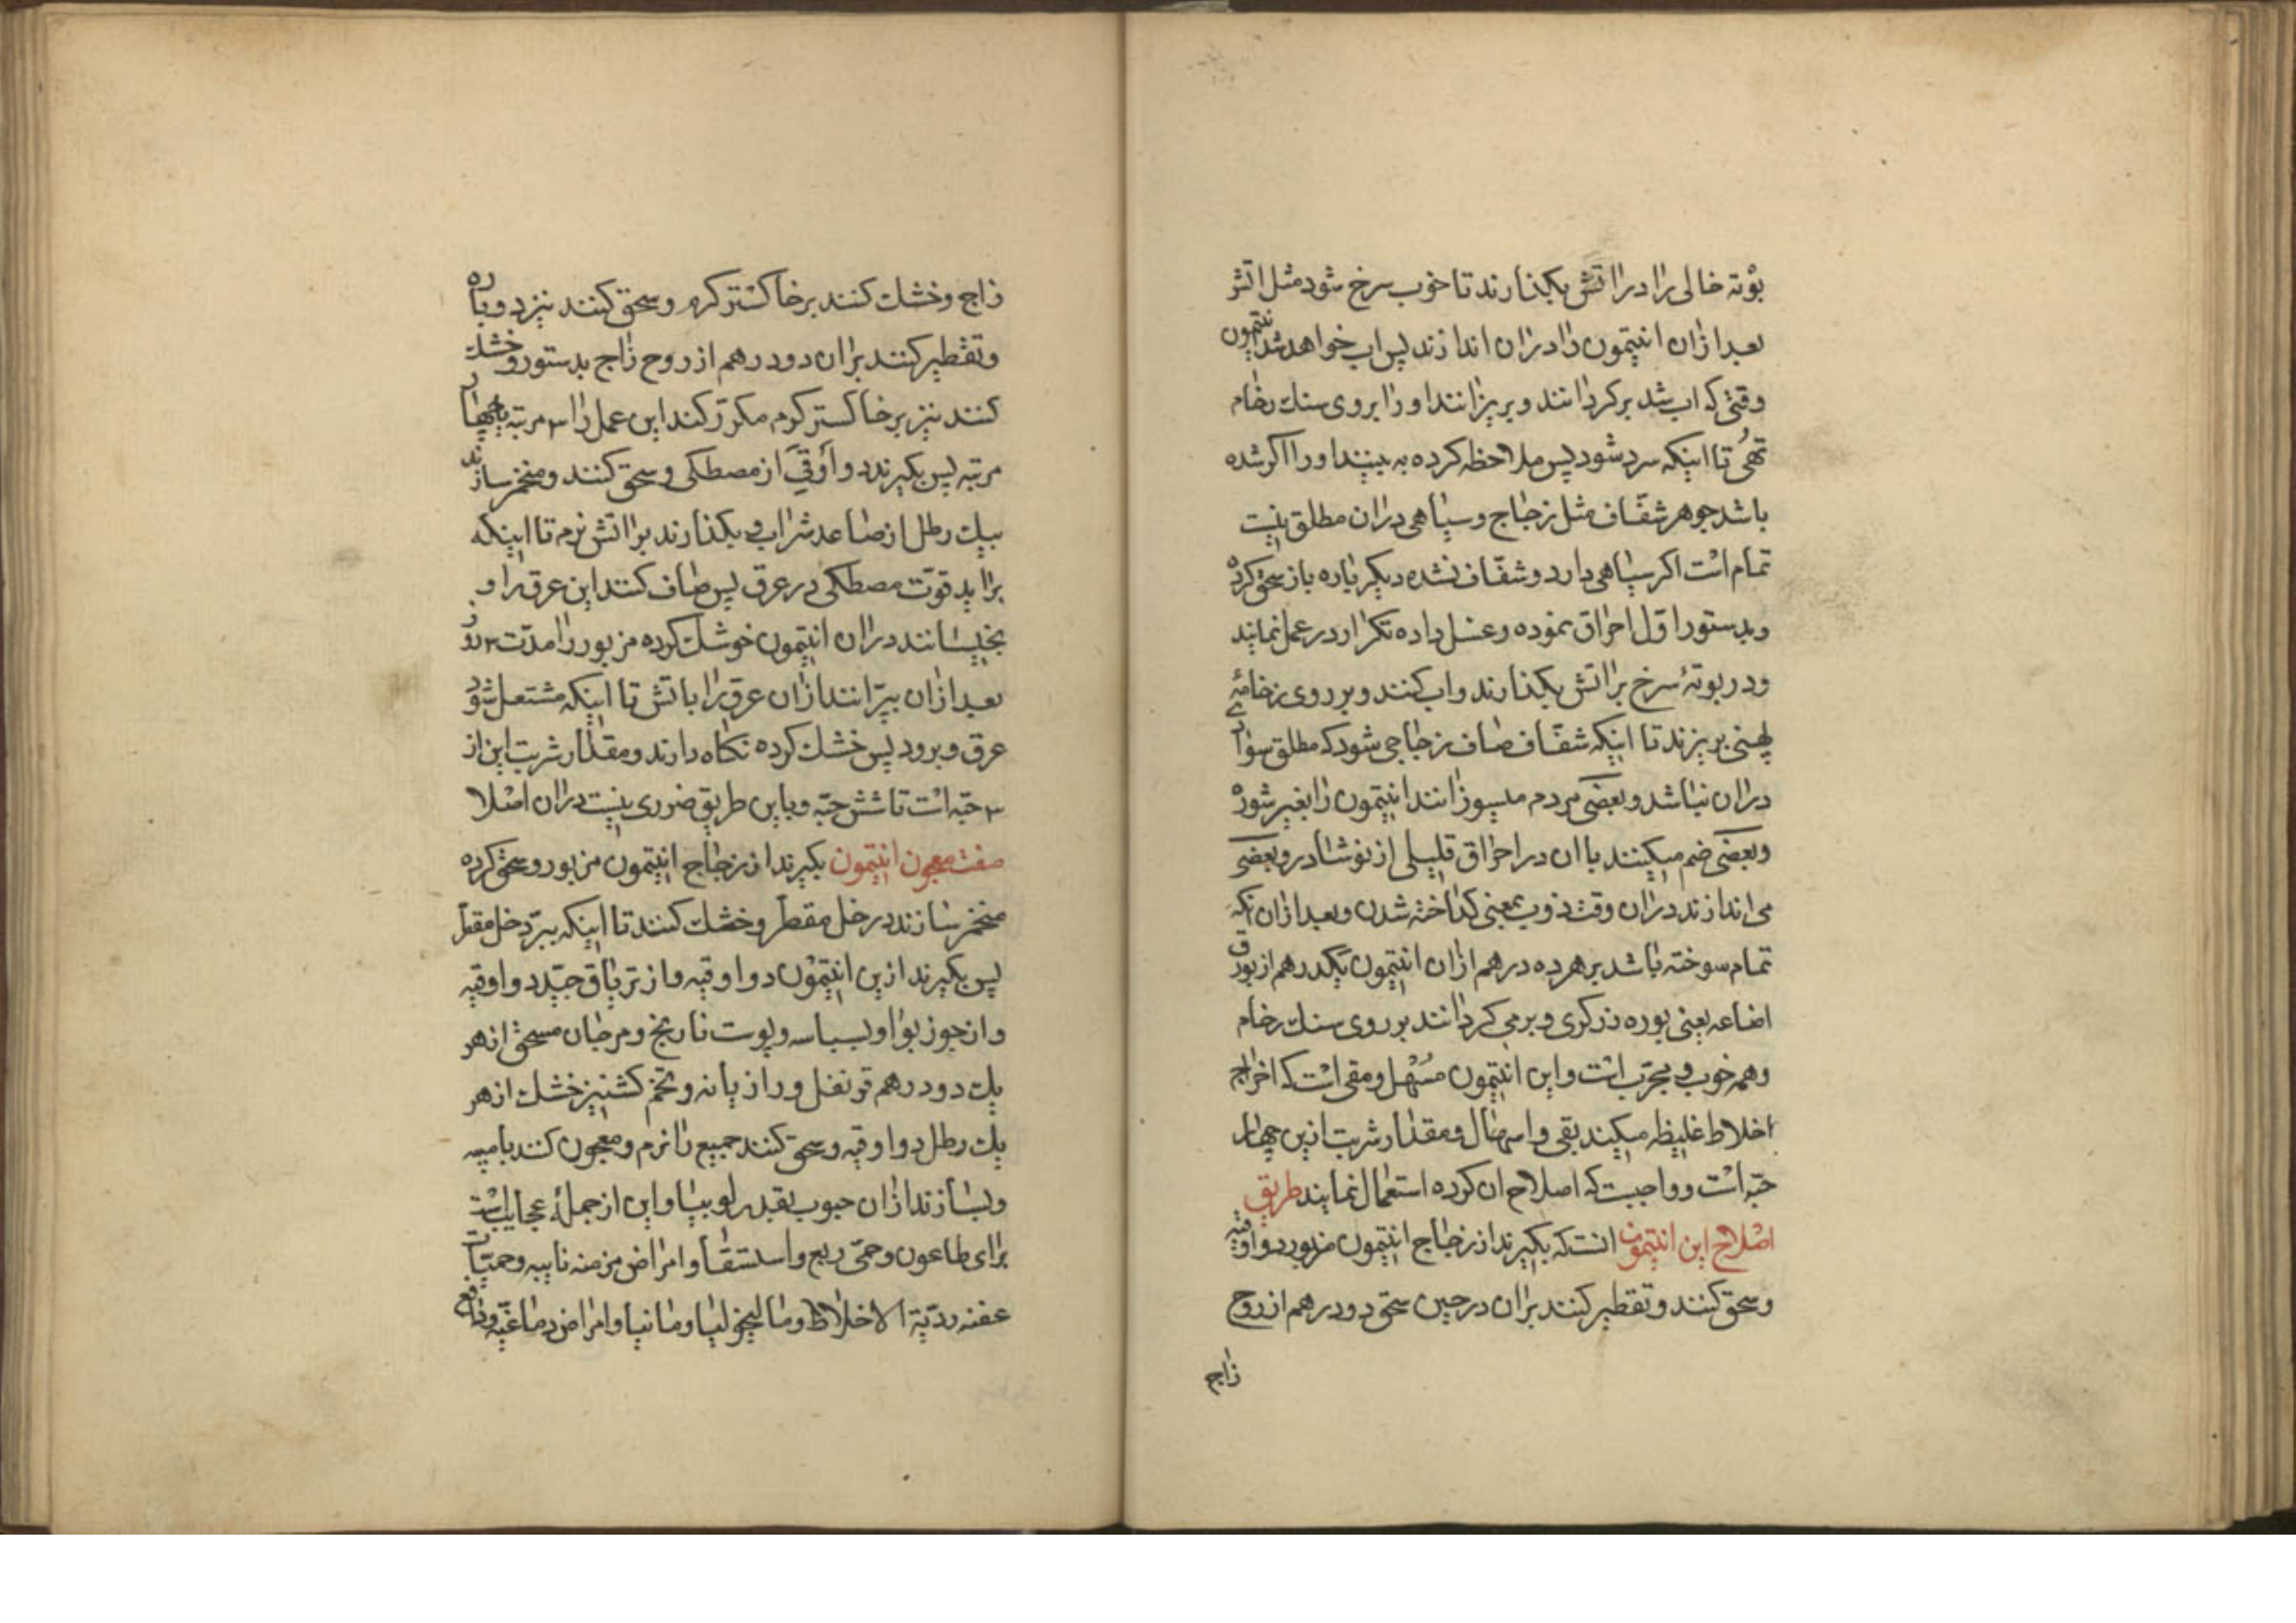 بوته خالی را در آتش بکذارند تا خوب سرخ شود مثل اتش
بعد از ان انتیمون را در ان اندازند پس اب خواهد شد انتیمون
وقتی که اب شد برکردانند و بریزانند او را بروی سنك رخام
تهی تا اینکه سرد شود پس ملاحظه کرده به بینند او را اکر شده
باشد جوهر شفّاف مثل زجاج و سیاهی در ان مطلق نیست
تمام است اکر سیاهی دارد و شفّاف نشده دیکر باره باز سحق کرده
و بدستور اوّل احراق نموده و غسل داده تکرار در عمل نمایند
و در بوتهٔ سرخ بر اتش بکذارند و اب کنند و بر روی رخامهٔ
پهنی بریزند تا اینکه شفّاف صاف زجاجی شود که مطلق سواد
در ان نباشد و بعضی مردم میسوزانند انتیمون را بغیر شوره
و بعضی ضم میکنند با ان در احراق قلیلی از نوشادر و بعضی
می اندازند در ان وقت ذوب بمعنی کداخته شدن و بعد از ان که
تمام سوخته باشد بر هر ده درهم از ان انتیمون یکدرهم از بورق
اضاعه یعنی بوره زرکری و برمی کردانند بر روی سنك رخام
و هم خوب و مجرّب است و این انتیمون مسهل و مقی است که اخراج
اخلاط غلیظه میکند بقی و اسهال و مقدار شربت ازین چهار
حبّه است و واجبست که اصلاح ان کرده استعمال نمایند طریق
اصلاح این انتیمون انست که بکیرند از زجاج انتیمون مزبور دو اوقیه
و سحق کنند و تقطیر کنند بر ان در حین سحق دو درهم از روح
زاج
زاج و خشك کنند بر خاکستر کرم و سحق کنند نیز دوباره
و تقطیر کنند بر ان دو درهم از روح زاج بدستور و خشك
کنند نیز بر خاکستر کرم مکرّر کند این عمل را ۳ مرتبه یا چهار
مرتبه پس بکیرند دو أوقیّ از مصطکی و سحق کنند و منخمر سازند
بیك رطل از صاعد شراب و بکذارند بر اتش نرم تا اینکه
براید قوّت مصطکی در عرق پس صاف کنند این عرق را و
بخیسانند در ان انتیمون خوشك کرده مزبور را مدّت ۳ روز
بعد از ان بپرانند از ان عرق را با تش تا اینکه مشتعل شود
عرق و برود پس خشك کرده نکاه دارند و مقدار شربت این از
۳ حبّه است تا شش حبّه و باین طریق ضرری نیست در ان اصلا
صفت معجون انتیمون بکیرند از زجاج انتیمون مزبور و سحق کرده
منخمر سازند در خل مقطر و خشك کنند تا اینکه بپرد خل مقطر
پس بکیرند ازین انتیمون دو اوقیه و از تریاق جیّد دو اوقیه
و از جوز بوا و بسباسه و پوست نارنج و مرجان مسحق از هر
یك دو درهم قرنفل و رازیانه و تخم کشنیز خشك از هر
یك رطل دو اوقیه و سحق کنند جمیع را نرم و معجون کنند بامیبه
و بسازند از ان حبوب بقدر لوبیا و این از جملهٔ عجایبست
برای طاعون و حمّی ربع و استسقا و امراض مزمنه نایبه و حمیّات
عفنه ردیّة الاخلاط و مالیخولیا و مانیا و امراض دماغیّه و دافع